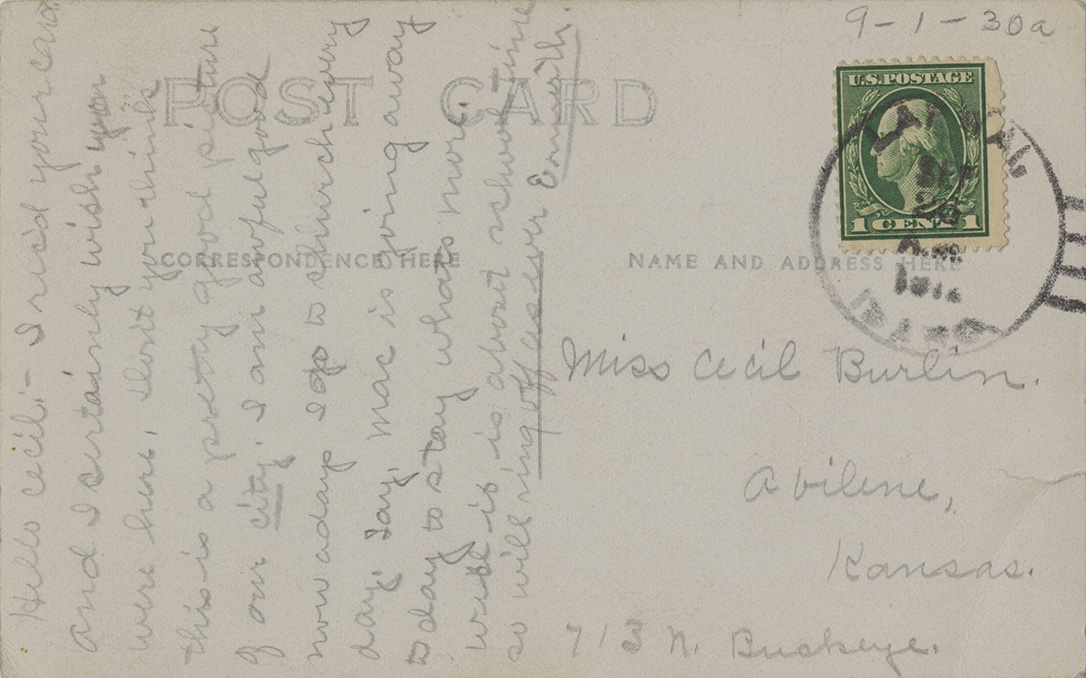 9-1-30a
POST CARD
U.S. POSTAGE
1 CENT 1
CORRESPONDENCE HERE
NAME AND ADDRESS HERE
Hello Cecil:- I rec'd your card
and I certainly wish you
were here, don't you think
this is a pretty good picture
of our city. I am awful good
now adays I go to church every
day. Say, Mac is going away
today to stay what's more.
Well it is about school time
so will ring off as ever
Miss Cecil Burlin.
Abilene,
Kansas.
713 N. Buckeye.